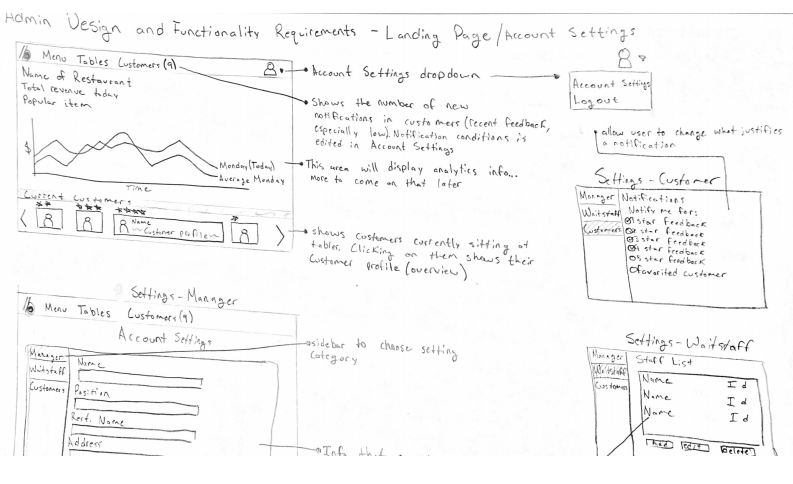 Admin Design and Functionality Requirements - Landing Page/Account Settings
Menu Tables Customers(9)
Name of Restaurant
Total revenue today
Popular item
$
Monday(Today)
Average Monday
Time
Current Customers
** *** **** *
< Name >
Customer profile
Account Settings dropdown
Account Settings
Logout
Shows the number of new
notifications in customers (recent feedback,
especially low). Notification conditions is
edited in Account Settings
This area will display analytics info...
more to come on that later
shows customers currently sitting at
tables. Clicking on them shows their
Customer profile (overview)
allow user to change what justifies
a notification
Settings - Customer
Manager
Waitstaff
Customers
Notifications
Notify me for:
1 star feedback
2 star feedback
3 star feedback
4 star feedback
5 star feedback
favorited customer
Settings - Manager
Menu Tables Customers(9)
Account Settings
Manager
Waitstaff
Customers
Name
Position
Rest. Name
Address
sidebar to choose setting
category
Info that
Settings - Waitstaff
Manager
Waitstaff
Customers
Staff List
Name Id
Name Id
Name Id
Add Edit Delete